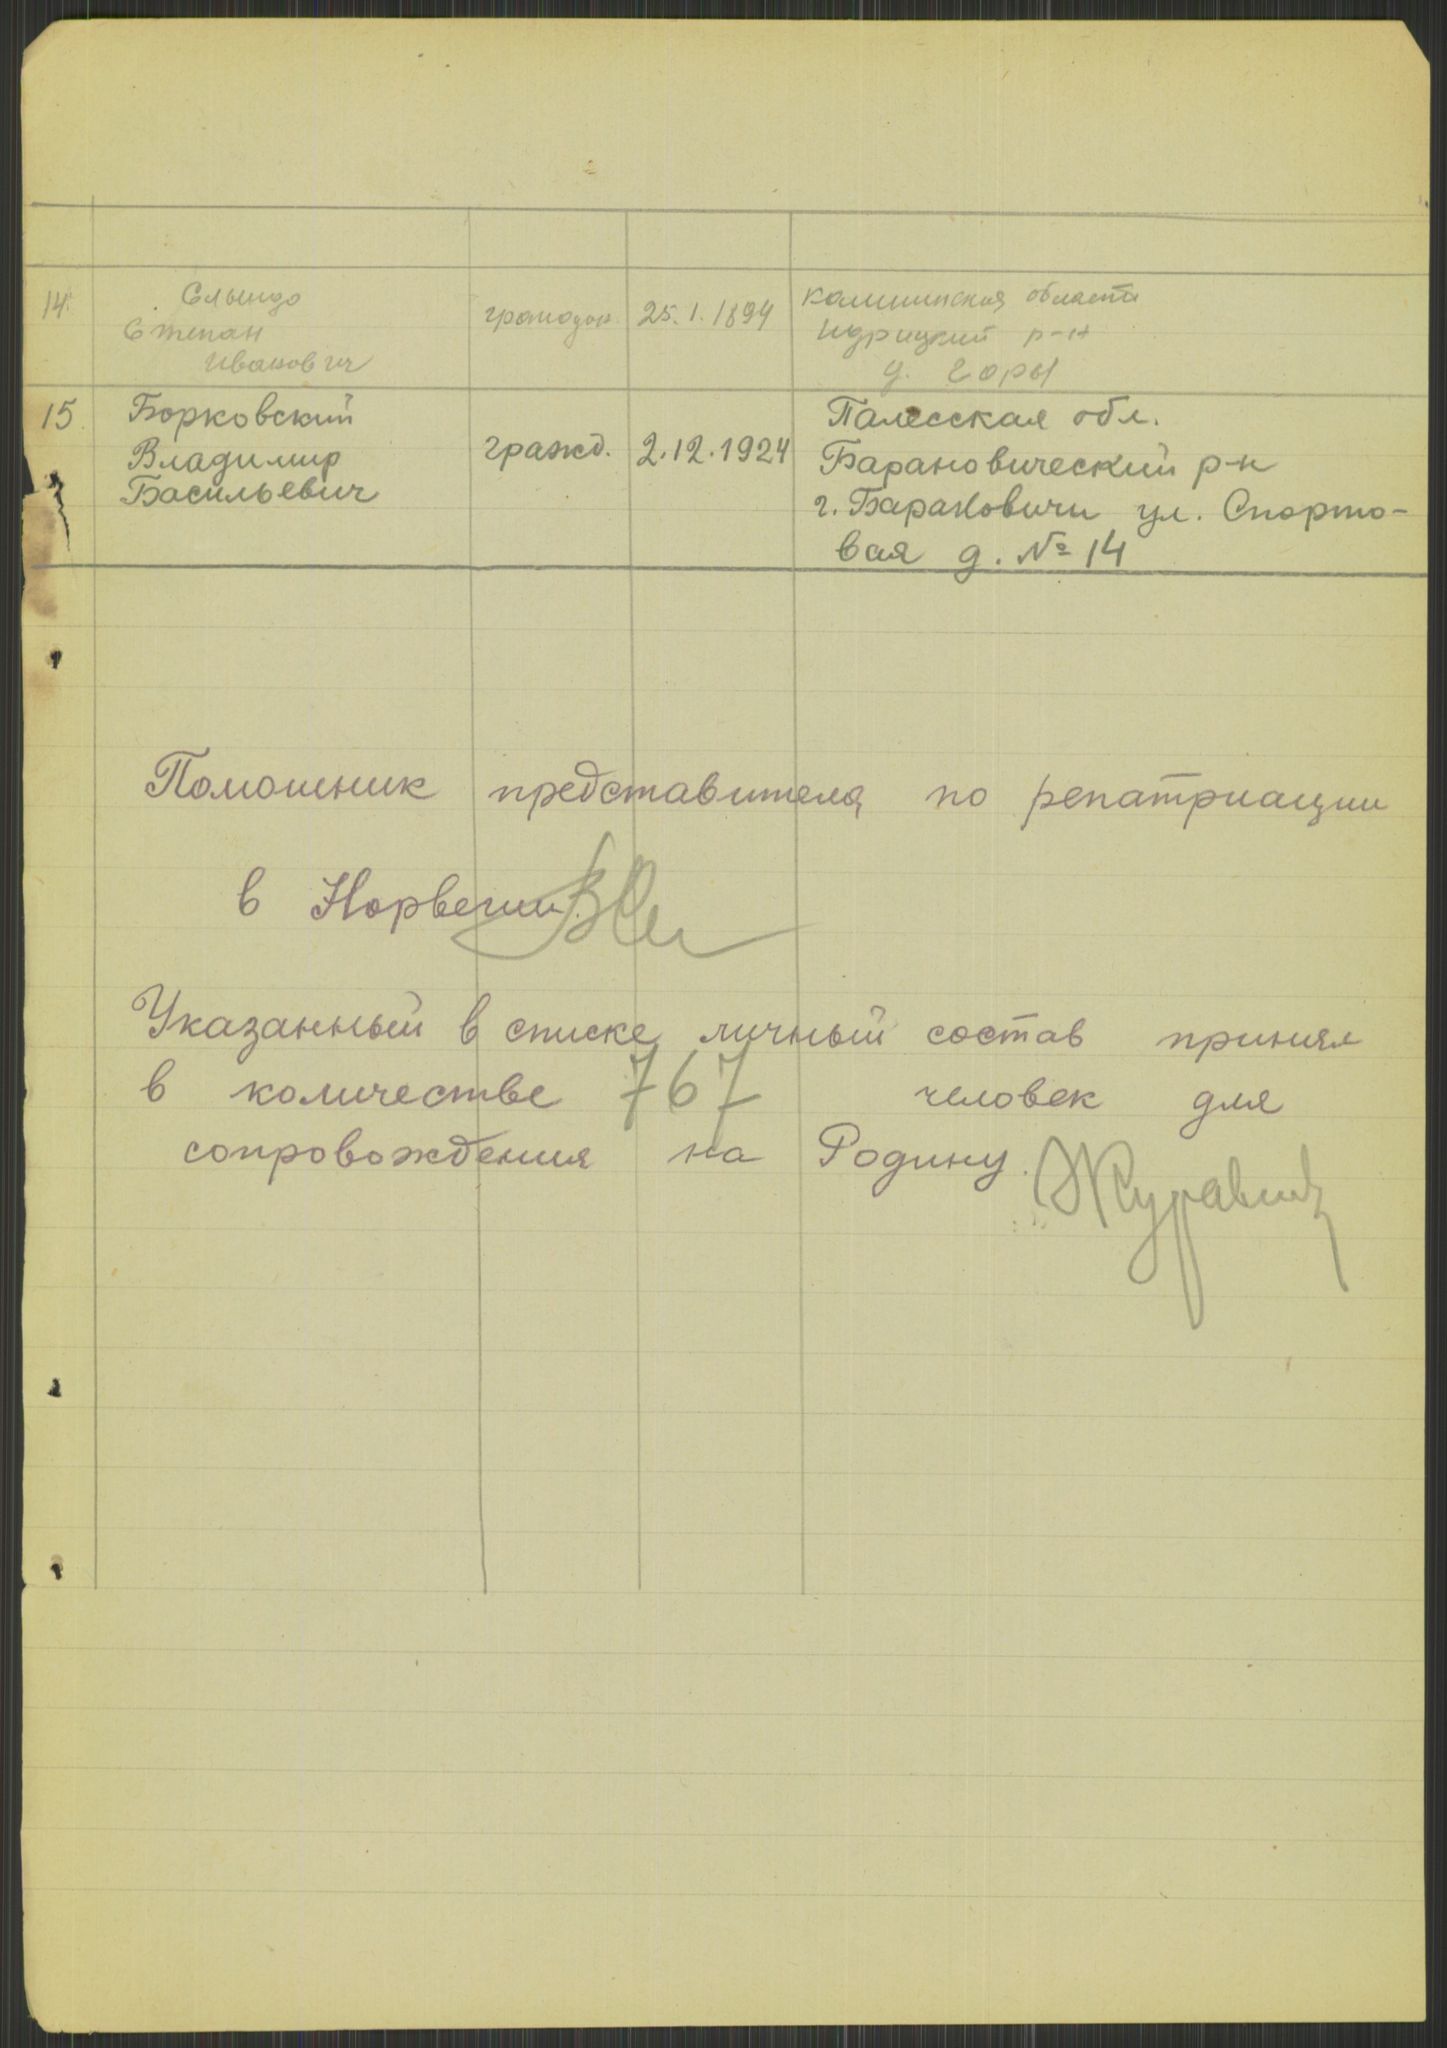 14. Елындо
Степан
Иванович
граждан. 25.1.1894
Калининская область
Идрицкий р-н
д. Горы
15. Борковский
Владимир
Васильевич
гражд. 2.12.1924
Палесская обл.
Барановический р-н
г. Барановичи ул. Спорто-
вая д. № 14
Помошник представителя по репатриации
в Норвегии.
Указанный в списке личный состав принял
в количестве 767 человек для
сопровождения на Родину.